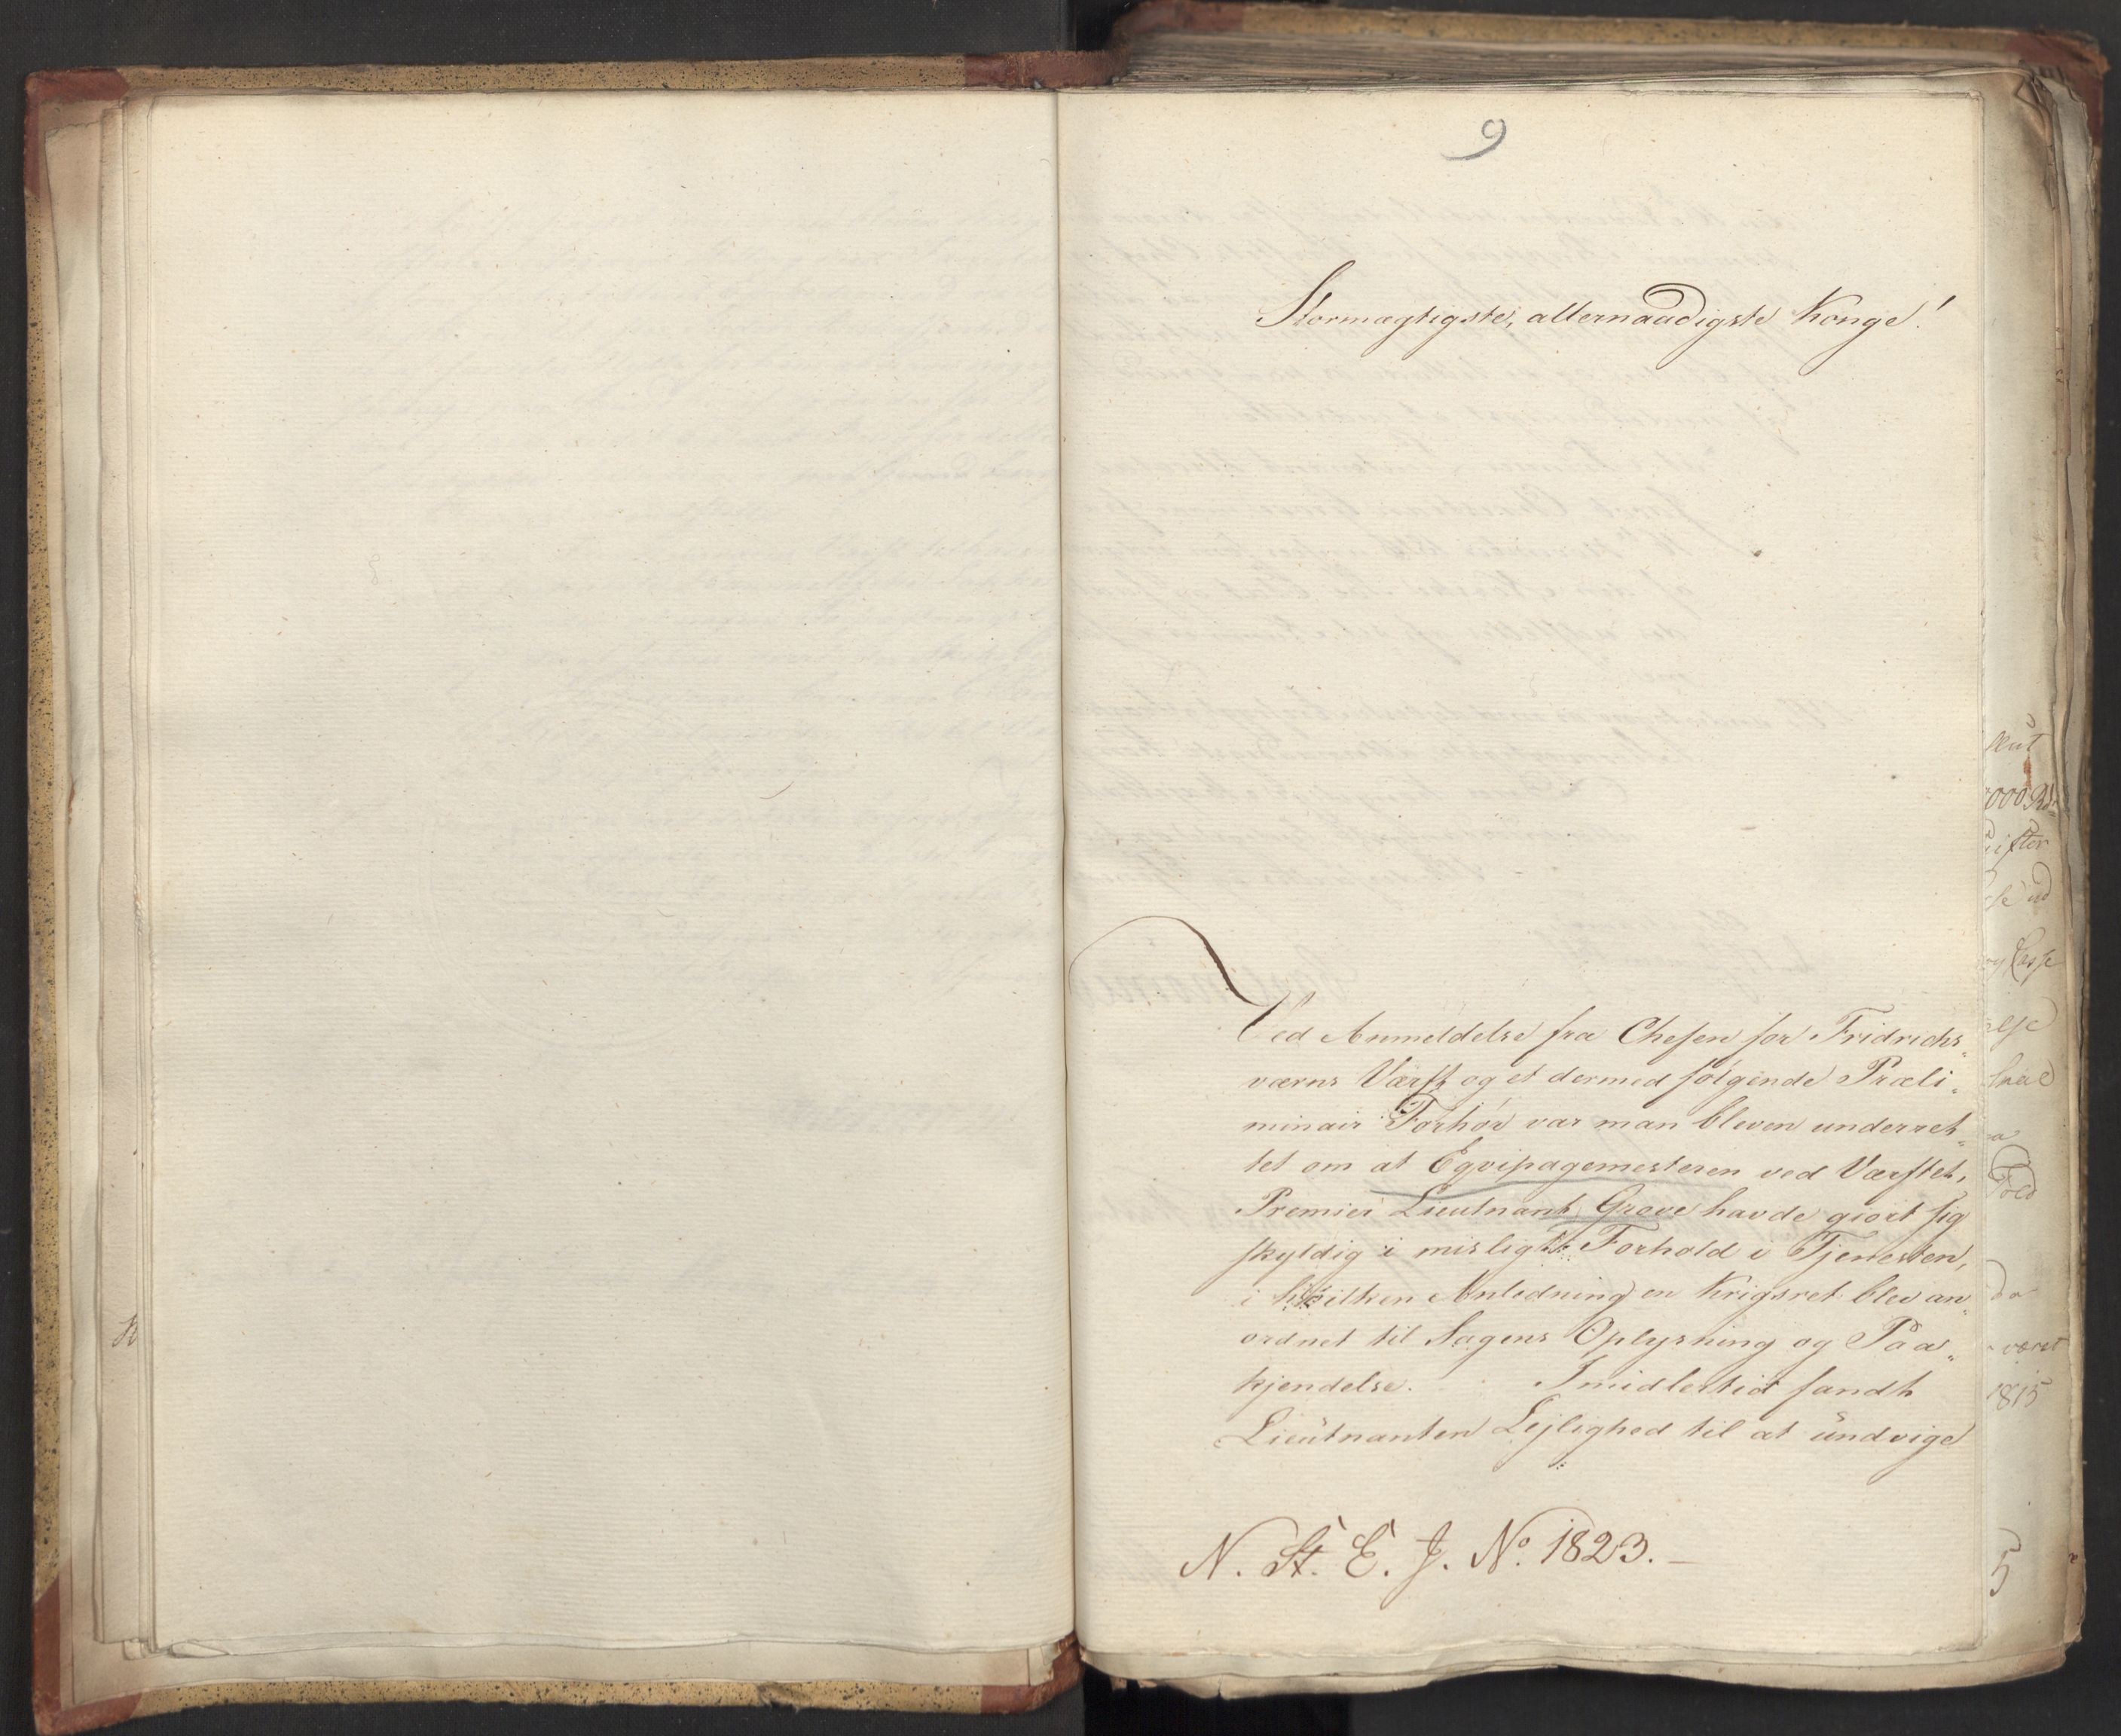 9
Stormægtigste, allernaadigste Konge!
Ved Anmeldelse fra Chefen for Fridrichs„
værns Værft og et dermed følgende Præli„
minair Forhør var man bleven underret„
tet om at Eqvipagemesteren ved Værftet,
Premier Lieutnant Grove havde giort sig
skyldig i misligt Forhold i Tjenesten,
i hvilken Anledning en Krigsret blev an„
ordnet til Sagens Oplysning og Paa„
kjendelse. Imidlertid fandt
Lieutnanten Lejlighed til at undvige
N. St. E. J. No. 1823.
1815